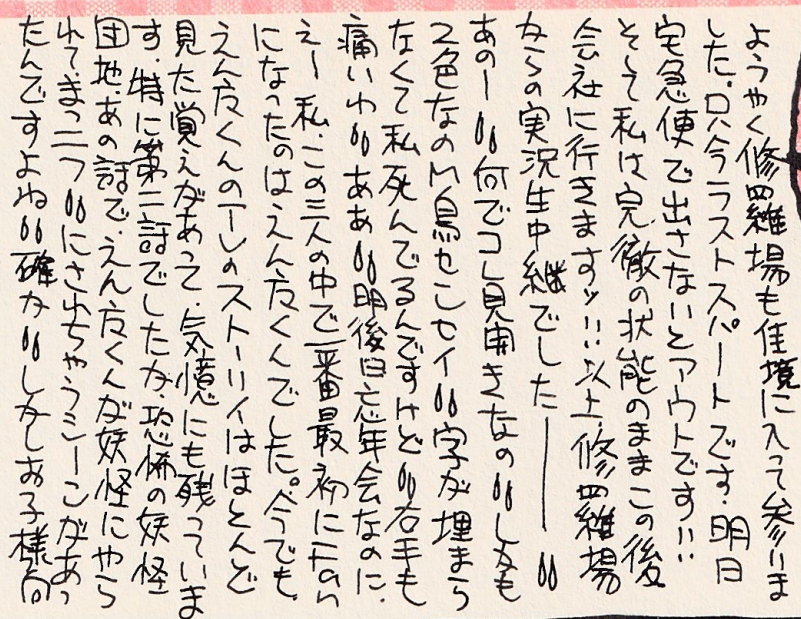 ようやく修羅場も佳境に入って参りま
した。只今ラストスパートです。明日
宅急便で出さないとアウトです!!
そして私は完徹の状態のままこの後
会社に行きますッ!!以上、修羅場
からの実況生中継でした――〃
あのー〃何でコレ見開きなの〃しかも
2色なのM鳥センセイ〃字が埋まら
なくて私死んでるんですけど〃右手も
痛いわ〃ああ〃明後日忘年会なのに。
えー私、この三人の中で一番最初に
になったのはえん魔くんでした。今でも
えん魔くんのTVのストーリイはほとんど
見た覚えがあって、気憶にも残っていま
す。特に第二話でしたか、恐怖の妖怪
団地。あの話で、えん魔くんが妖怪にやら
れて、まっ二つ〃にされちゃうシーンがあっ
たんですよね〃確か〃しかしお子様向